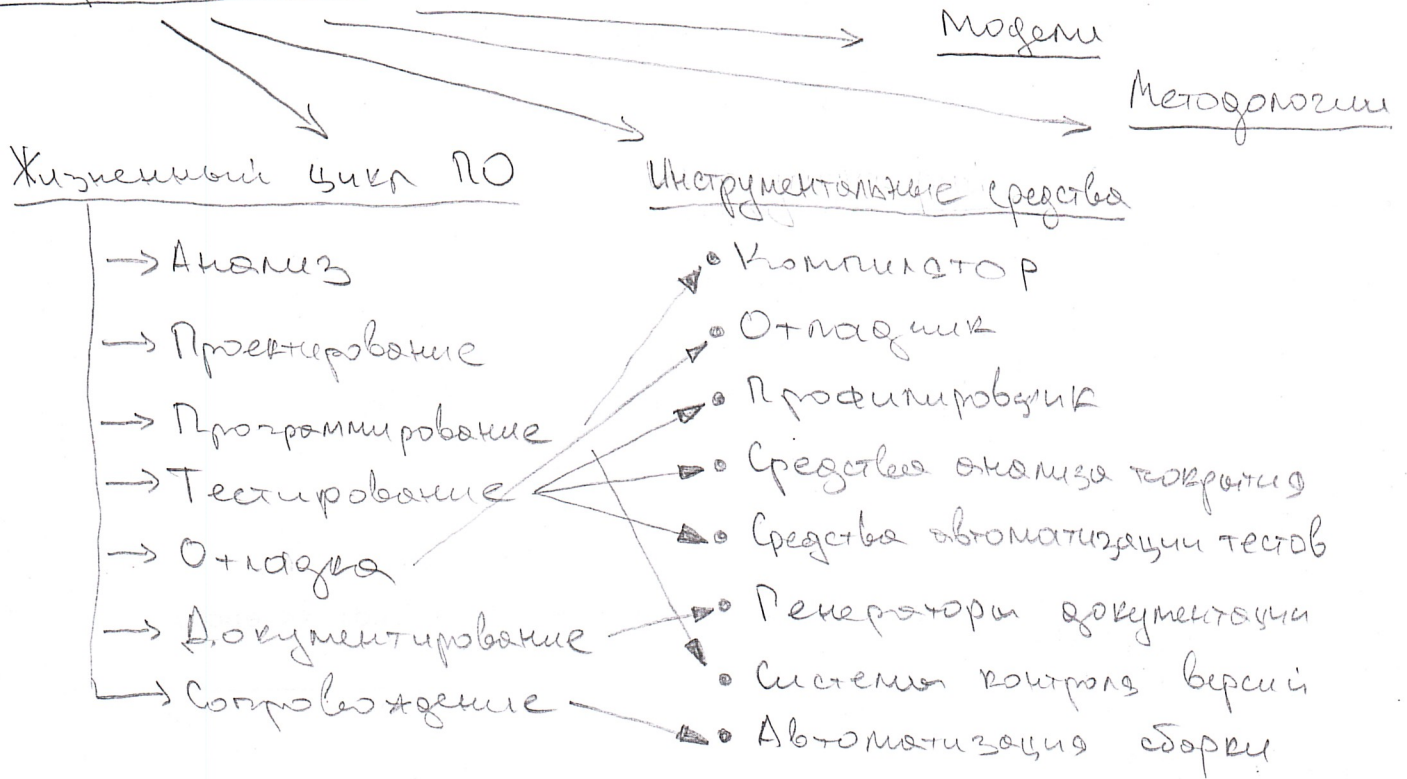 Модели
Методологии
Жизненный цикл ПО
Инструментальные средства
Анализ
Проектирование
Программирование
Тестирование
Отладка
Документирование
Сопровождение
Компилятор
Отладчик
Профилировщик
Средства анализа покрытия
Средства автоматизации тестов
Генераторы документации
Системы контроля версий
Автоматизация сборки